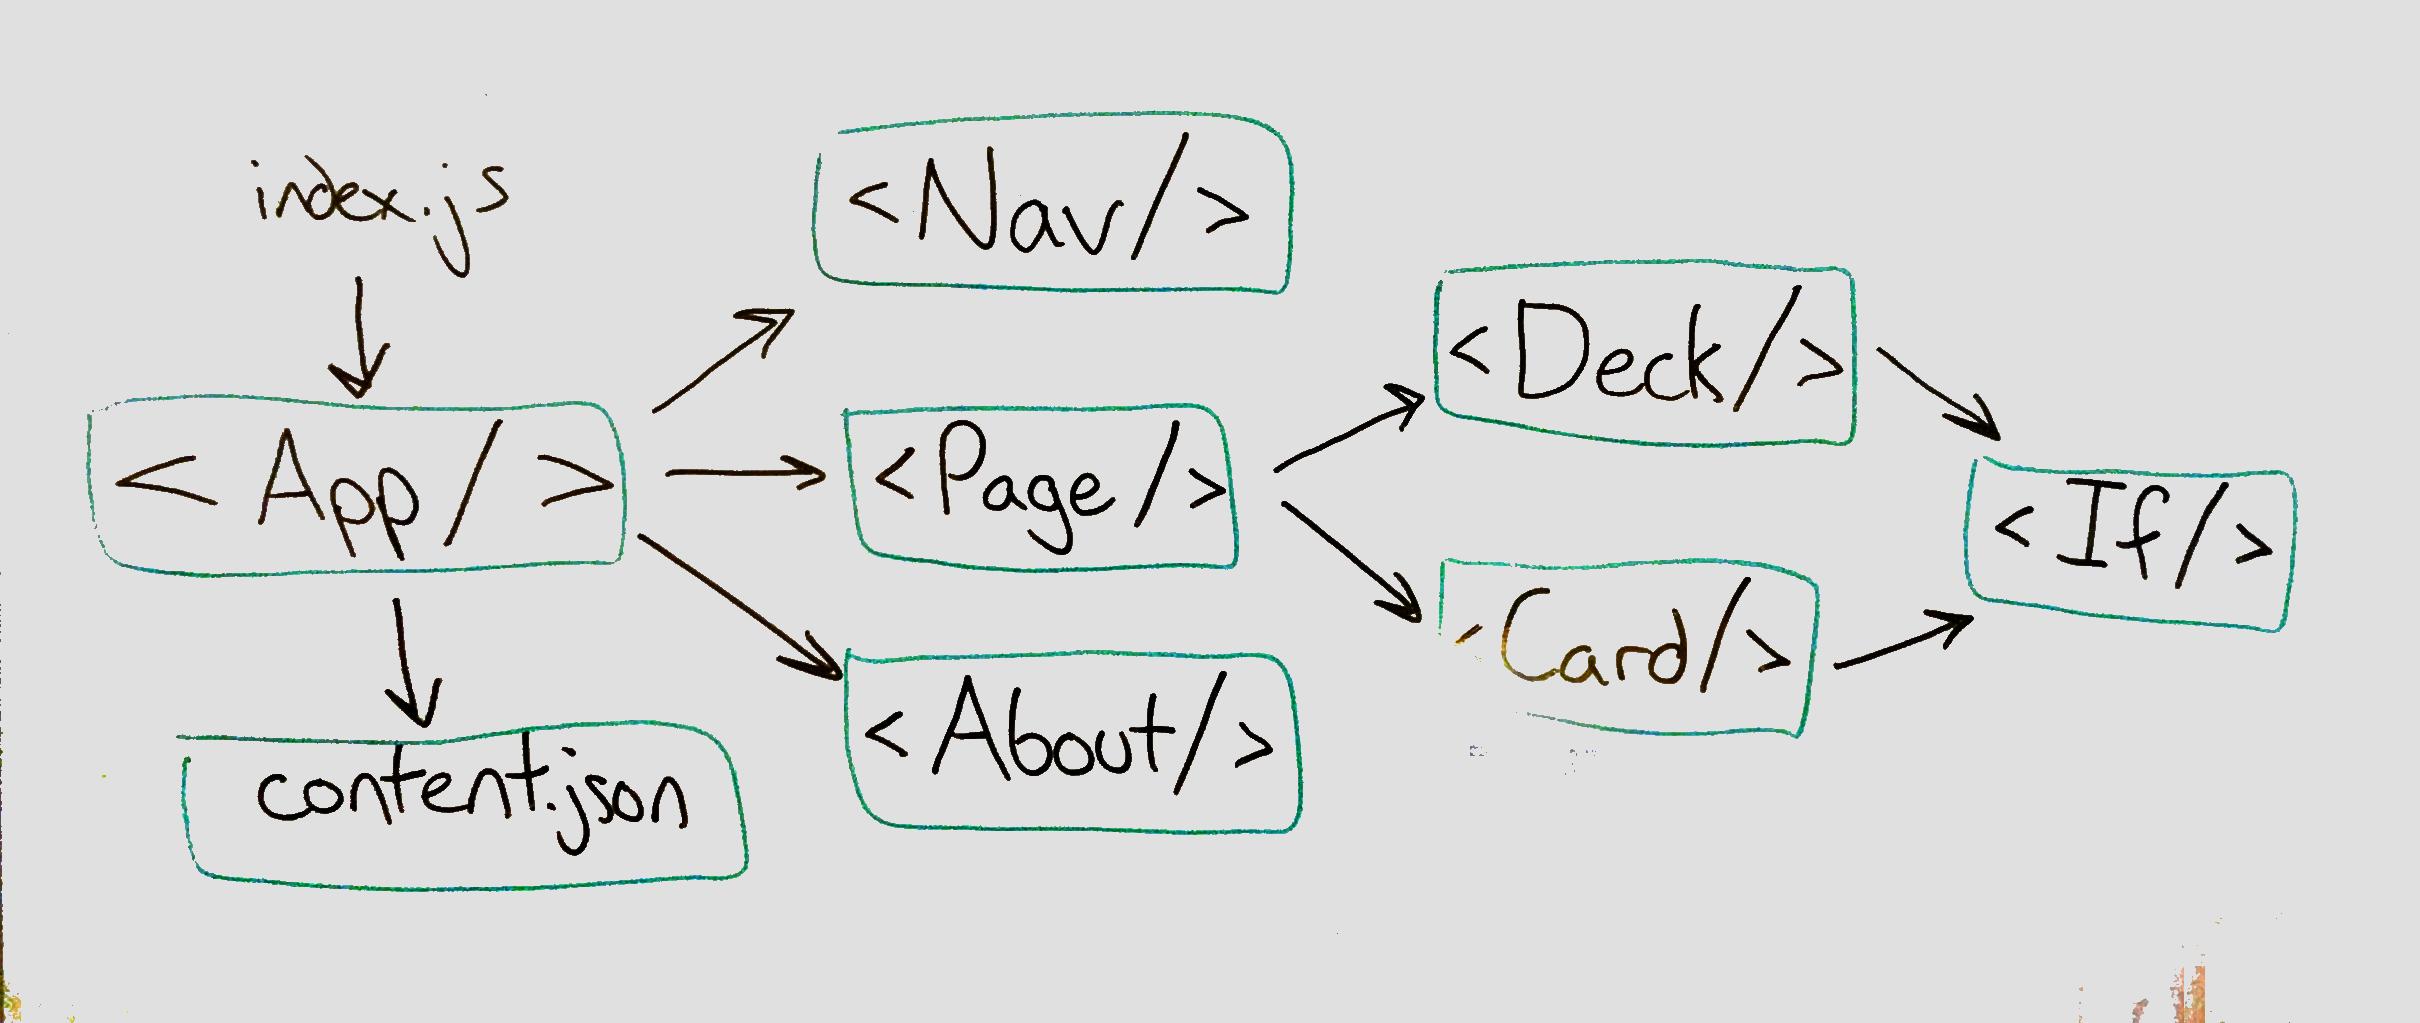 index.js
<App/>
content.json
<Nav/>
<Page/>
<About/>
<Deck/>
<Card/>
<If/>